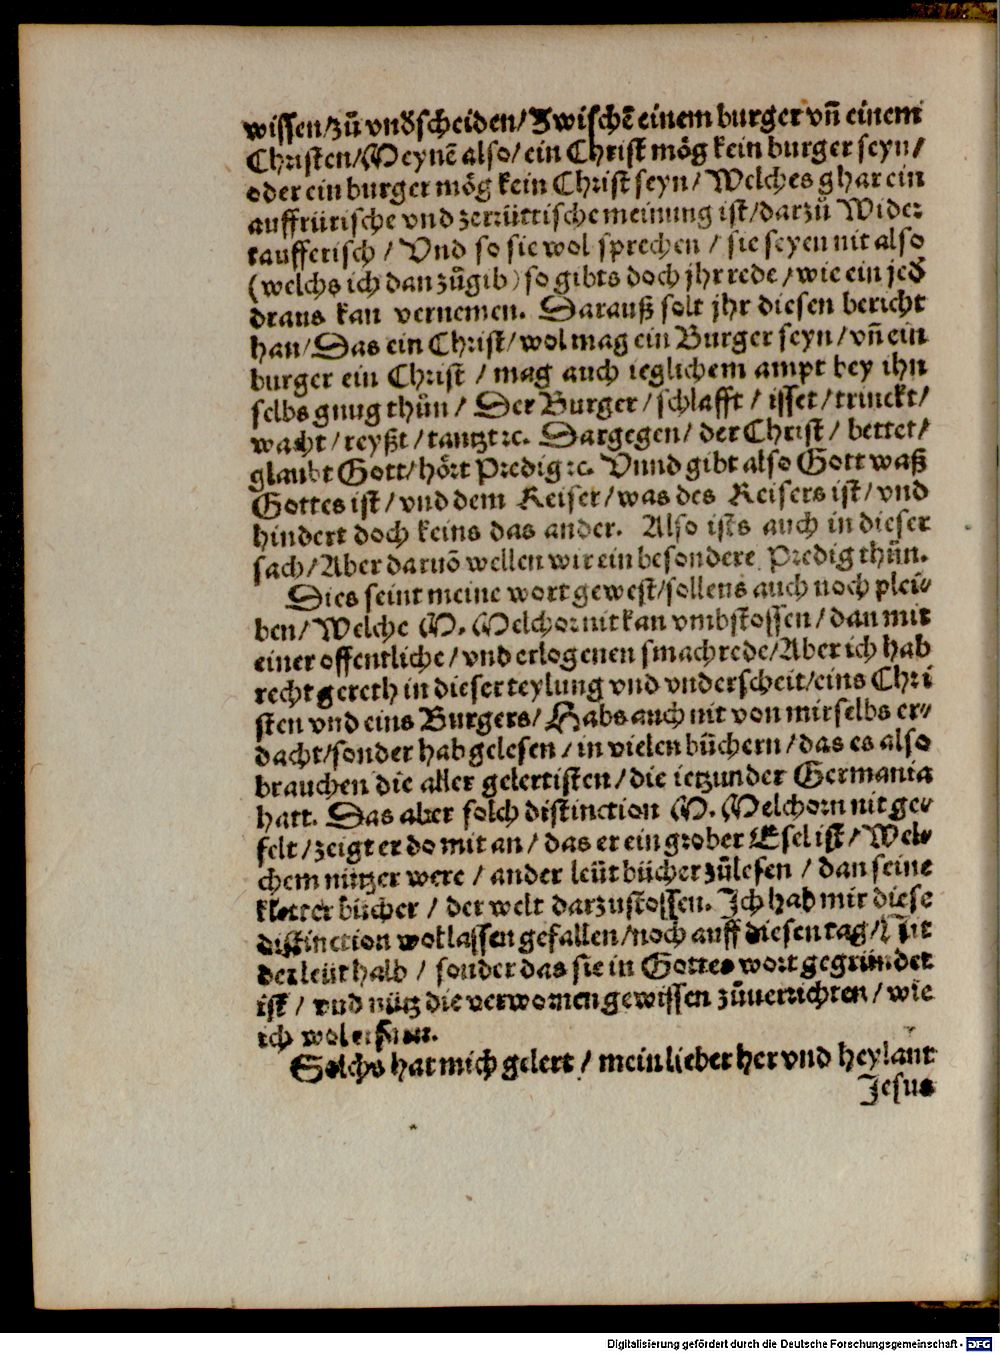 wissen/zů vnd̄scheiden/Zwischē einem burger vñ einem
Christen/Meynē also/ein Christ mög kein burger seyn/
oder ein burger mög kein Christ seyn/Welches ghar ein
auffrürische vnd zerrüttische meinung ist/darzů Wider
taufferisch/Vnd so sie wol sprechen/sie seyen nit also
(welchs ich dan zůgib) so gibts doch jhr rede/wie ein jed̄
draus kan vernemen. Darauß solt jhr diesen bericht
han/Das ein Christ/wol mag ein Burger seyn/vñ ein
burger ein Christ/mag auch ieglichem ampt bey ihn
selbs gnug thůn/Der Burger/schlafft/isset/trinckt/
wacht/reyßt/tantzt ꝛc. Dargegen/der Christ/bettet/
glaubt Gott/hört Predig ꝛc. Vnnd gibt also Gott waß
Gottes ist/vnd dem Keiser/was des Keisers ist/vnd
hindert doch keins das ander. Also ists auch in dieser
sach/Aber daruō wellen wir ein besondere Predig thůn.
Dies seint meine wort gewest/sollens auch noch plei-
ben/Welche M. Melchor nit kan vmbstossen/dan mit
einer offentliche/vnd erlogenen smachrede/Aber ich hab
recht gereth in dieser teylung vnd vnderscheit/eins Chri
sten vnd eins Burgers/Habs auch nit von mir selbs er-
dacht/sonder hab gelesen/in vielen bůchern/das es also
brauchen die aller gelertisten/die ietzunder Germania
hatt. Das aber solch distinction M. Melchorn nit ge-
felt/zeigt er do mit an/das er ein grober Esel ist/Wel-
chem nützer were/ander leüt bücher zůlesen/dan seine
kletter bücher/der welt darzustossen. Ich hab mir diese
distinction wol lassen gefallen/noch auff diesen tag/Nit
der leüt halb/sonder das sie in Gottes wort gegründet
ist/vnd nütz die verwornen gewissen zůuerrichten/wie
ich wol
Solchs hat mich gelert/mein lieber her vnd heylant
Jesus
Digitalisierung gefördert durch die Deutsche Forschungsgemeinschaft - DFG